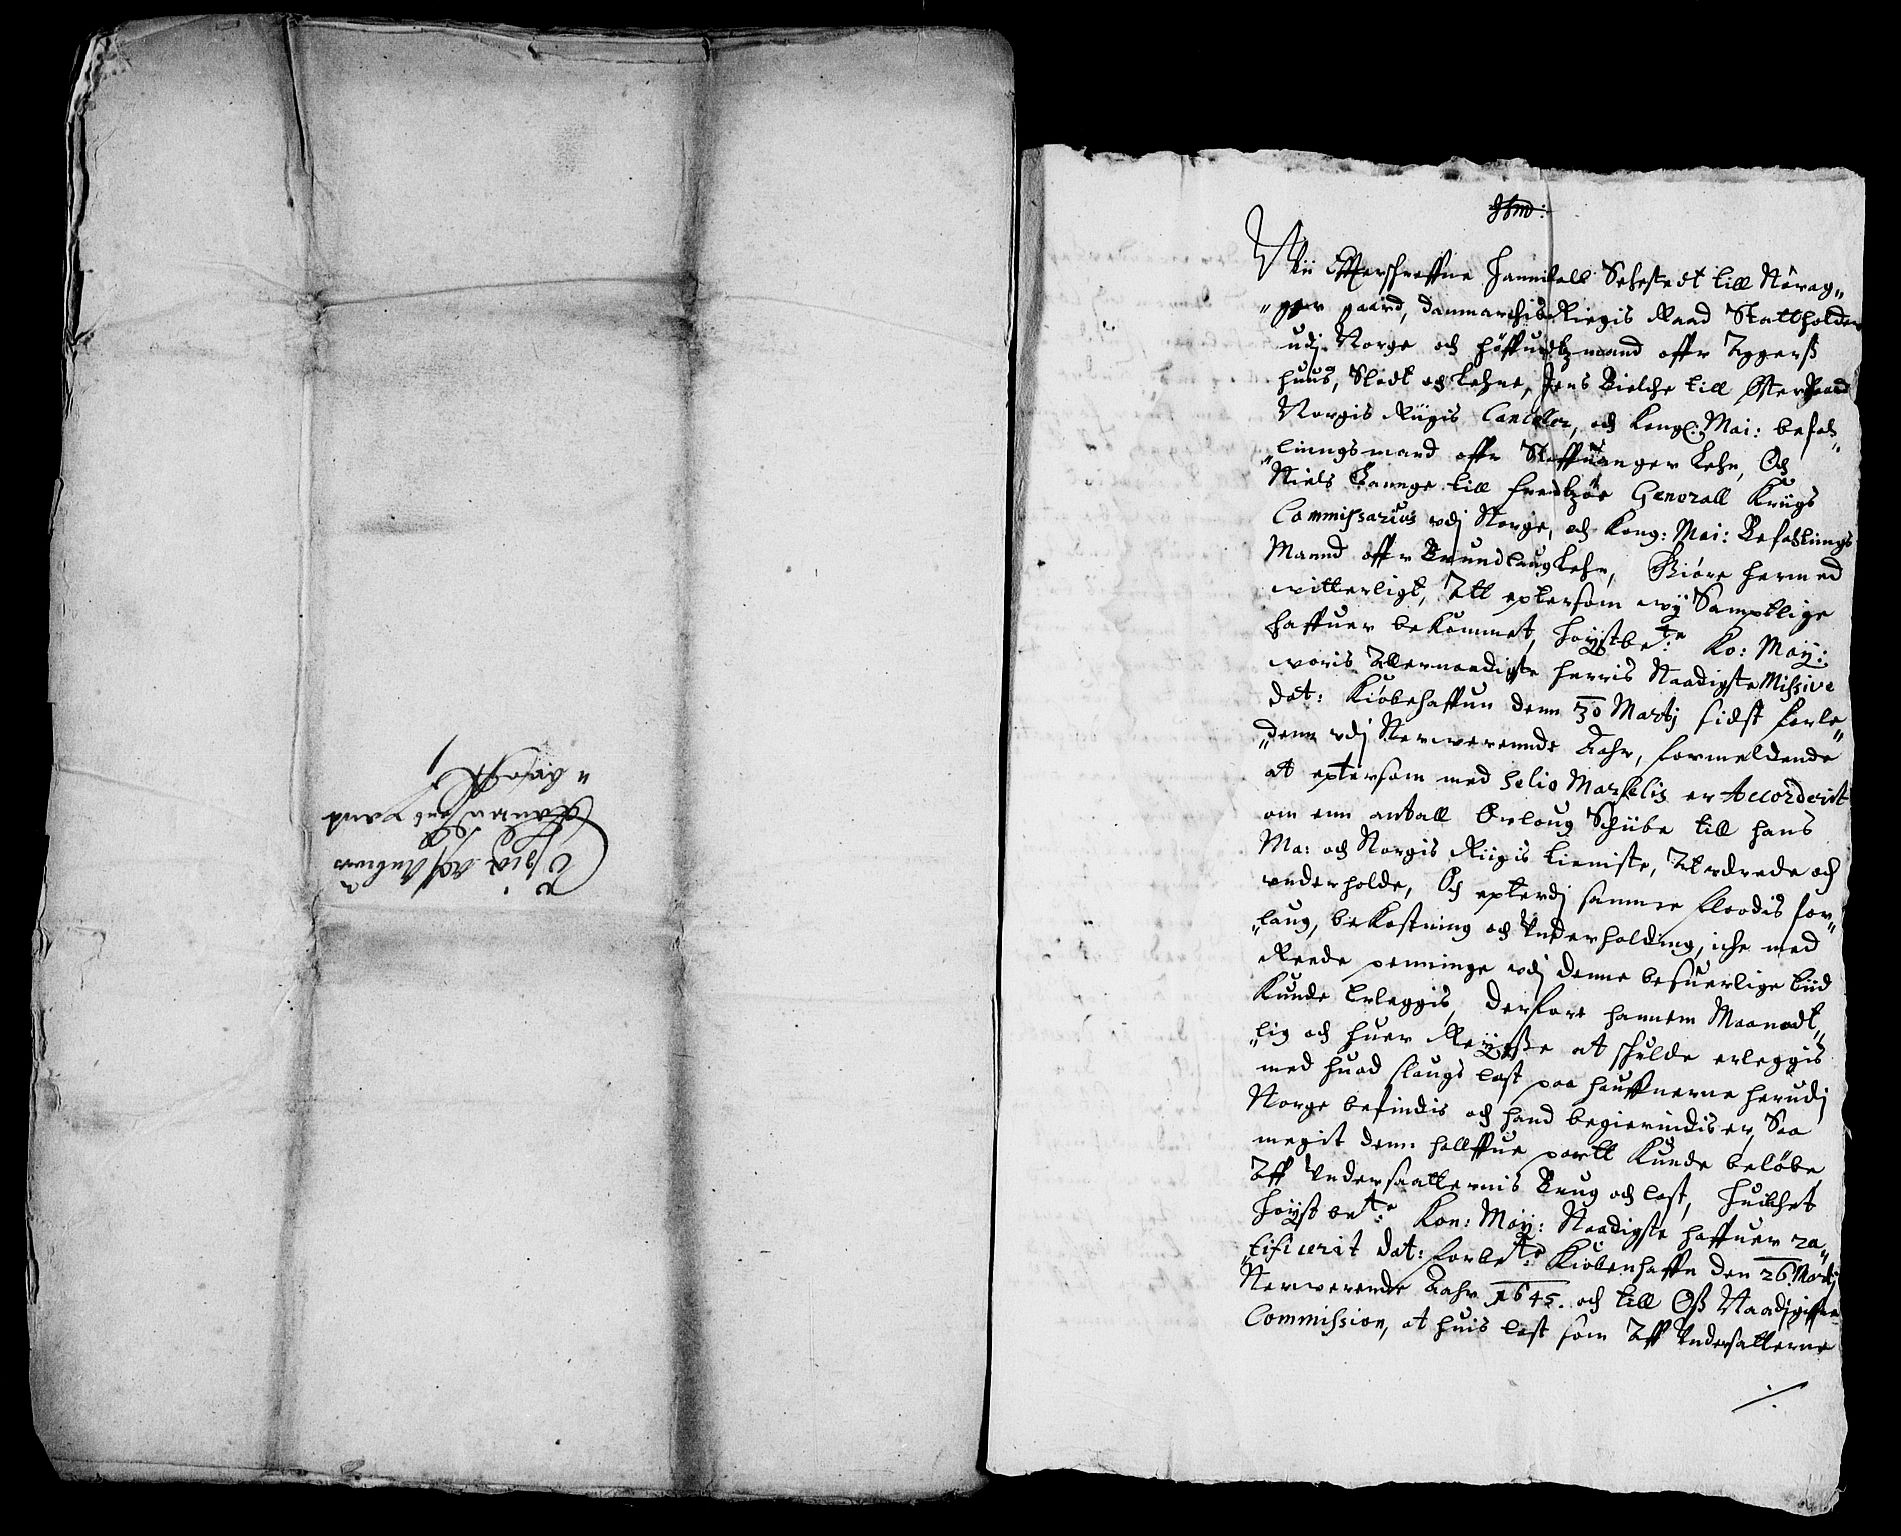 Wii Effterschreffne Hanniball Sehestedt till Nörag„
„ger gaard, Danmarchis Riegis Raad Stattholder
udj Norge och höffuedtzmand offr Aggerß
huus, Slodt och Lehne, Jens Bielche till Østeraad
Norgis Riigis Canceler, och Kongl: Mai: befah„
„lingsmand offr Staffuanger Lehn, Och
Niels Lannge till Fredtzøe Generall Kriigs
Commissarius udj Norge, och Kong: Mai: Befahlings
Mannd offr Brundlaug Lehn, Giöre hermed
witterligt, Att eptersom wÿ Samptlige
haffuer bekommet, Høÿstbete: Ko: Maÿ:
woris Allernaadigste herris Naadigste Missive
dat: Kiöbehaffun denn 30 Martj sidst forle„
„denn udj Nerwerennde Aahr, formeldende
at eptersom med Selio Marselis er Accorderit
om enn antall Orloug Schiibe till hans
Ma: och Norgis Riigis tieniste, At udrede och
underholde, Och epterdj samme floodis for„
„laug, bekostning och Underholding, iche med
Reede penninge udj denne besuerlige tiid
kunde Erleggis, derfore hannem Maanedt„
„lig och huer Reÿße at schulde erleggis
med huad slaugs last paa hauffnerne herudj
Norge befindis och hand begierindis er, Saa
megit denn hallffue partt kunde beløbe
Aff Undersaatternis Brug och last, Huilchet
Høÿstbete: Kon: Maÿ: Naadigste haffuer ra„
„tificerit dat: forbete: Kiöbenhaffn den 26 Martj
Nerwerende Aahr 1645. och till Oß Naadigiffuen
Commission, at huis last som Aff Undersatterne